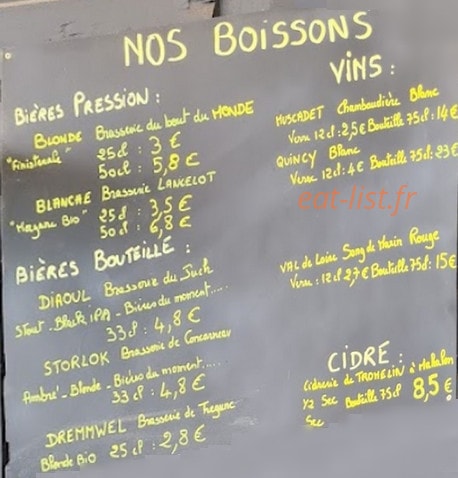 NOS BOISSONS
BIÈRES PRESSION :
BLONDE Brasserie du bout du MONDE
25cl : 3 €
50cl : 5,8 €
BLANCHE Brasserie LANCELOT
25cl : 3,5 €
50cl : 6,8 €
BIÈRES BOUTEILLE :
DIAOUL Brasserie du
Stout - Black iPA - Bières du moment.....
33cl : 4,8 €
STORLOK Brasserie de Concarneau
Ambré - Blonde - Bières du moment.....
33cl : 4,8 €
DREMMWEL Brasserie de Tregunc
Blonde Bio 25cl : 2,8 €
VINS :
MUSCADET Chambaudière Blanc
Verre 12cl : 2,5€ Bouteille 75cl : 14€
QUINCY Blanc
Verre 12cl : 4€ Bouteille 75cl : 23€
eat-list.fr
VAL de Loire Song de Marin Rouge
Verre : 12cl 2,7€ Bouteille 75cl : 15€
CIDRE :
Cidrerie de
1/2 Sec Bouteille 75cl 8,5€
Sec